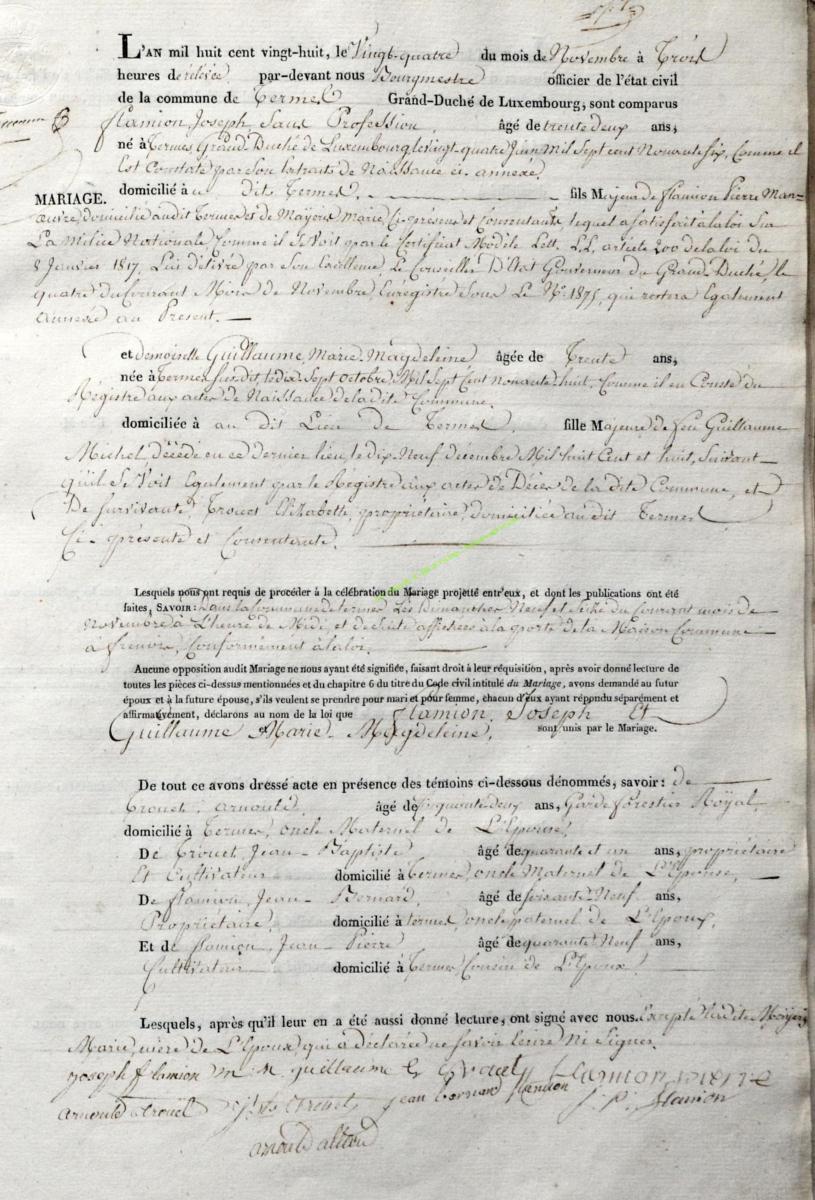 L'AN mil huit cent vingt-huit, le Vingt-quatre du mois de Novembre à Trois
heures de relévée par-devant nous Bourgmestre officier de l'état civil
de la commune de Termes Grand-Duché de Luxembourg, sont comparus
flamion Joseph Sans Profession, âgé de trente deux ans,
né à Termes Grand Duché de Luxembourg le vingt quatre Juin Mil Sept cent Nonante Six, Comme il
Est Constaté par Son Extraits de Naissance ci annexé.
MARIAGE. domicilié à u dit Termes. fils Majeur de flamion Pierre Man-
œuvre, domicilié audit Termes et de Mayeris Marie, Ci-présens et Consentants, lequel a satisfait à la loi Sur
La Milice Nationale, Comme il Se Voit par le Certificat Modèle Lett. LL, article 200 de la loi du
8 Janvier 1817, Lui délivré par Son Excellence Le Conseiller D'Etat Gouverneur du Grand-Duché, le
quatre du Courant Mois de Novembre, Enregistré Sous Le N° 1875, qui restera Egalement
annexé au Présent.
et demoiselle Guillaume, Marie-Magdeleine âgée de Trente ans,
née à Termes susdit le dix Sept octobre Mil Sept Cent nonante-huit, Comme il en Conste du
Régistre aux actes de Naissance de la dite Commune.
domiciliée à au dit Lieu de Termes. fille Majeure de feu Guillaume
Michel, Décédé en ce dernier lieu, le dix Neuf décembre Mil-huit Cent et huit, Suivant
qu'il Se Voit Egalement par le Régistre aux actes de Décès de la dite Commune, et
De Survivante Trouet Elizabette, propriétaire, domiciliée au dit Termes
Ci-présente et Consentante.
Lesquels nous ont requis de procéder à la célébration du Mariage projetté entr'eux, et dont les publications ont été
faites, SAVOIR: Dans la Commune de termes Les Dimanches Neuf et Seize du Courant mois de
Novembre à L'heure de Midi, et de Suite affichées à la porte de la Maison Commune
à frenois, Conformément à la loi.
Aucune opposition audit Mariage ne nous ayant été signifiée, faisant droit à leur réquisition, après avoir donné lecture de
toutes les pièces ci-dessus mentionnées et du chapitre 6 du titre du Code civil intitulé du Mariage, avons demandé au futur
époux et à la future épouse, s'ils veulent se prendre pour mari et pour femme, chacun d'eux ayant répondu séparément et
affirmativement, déclarons au nom de la loi que flamion, Joseph Et
Guillaume Marie-Magdeleine, sont unis par le Mariage.
De tout ce avons dressé acte en présence des témoins ci-dessous dénommés, savoir: de
Trouet arnould, âgé de cinquante deux ans, Garde forestier Royal,
domicilié à Termes, oncle Maternel de L'Epouse,
De Trouet, Jean-Baptiste âgé de quarante et un ans, propriétaire
Et Cultivateur domicilié à Termes, oncle Maternel de L'Epouse,
De flamion, Jean-Bernard, âgé de soixante Neuf ans,
Propriétaire, domicilié à termes, oncle paternel de L'Epoux,
Et de flamion, Jean-Pierre âgé de quarante Neuf ans,
Cultivateur domicilié à Termes Cousin de L'Epoux.
Lesquels, après qu'il leur en a été aussi donné lecture, ont signé avec nous. Excepté ladite Mayeris
Marie, mère de L'Epoux, qui a déclaré ne Savoir Ecrire Ni Signer.
Joseph flamion m. m. guillaume flamion pierre
arnould trouet jean bernard flamion J. P. flamion